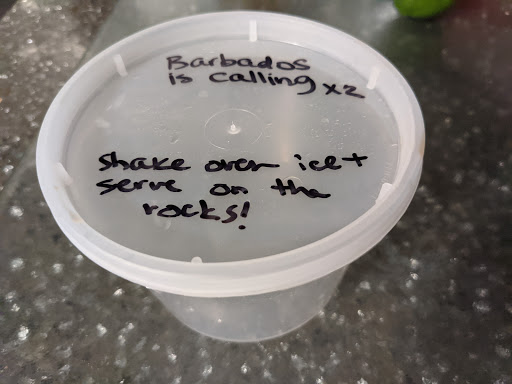 Barbados
is calling x2
shake over ice +
serve on the
rocks!